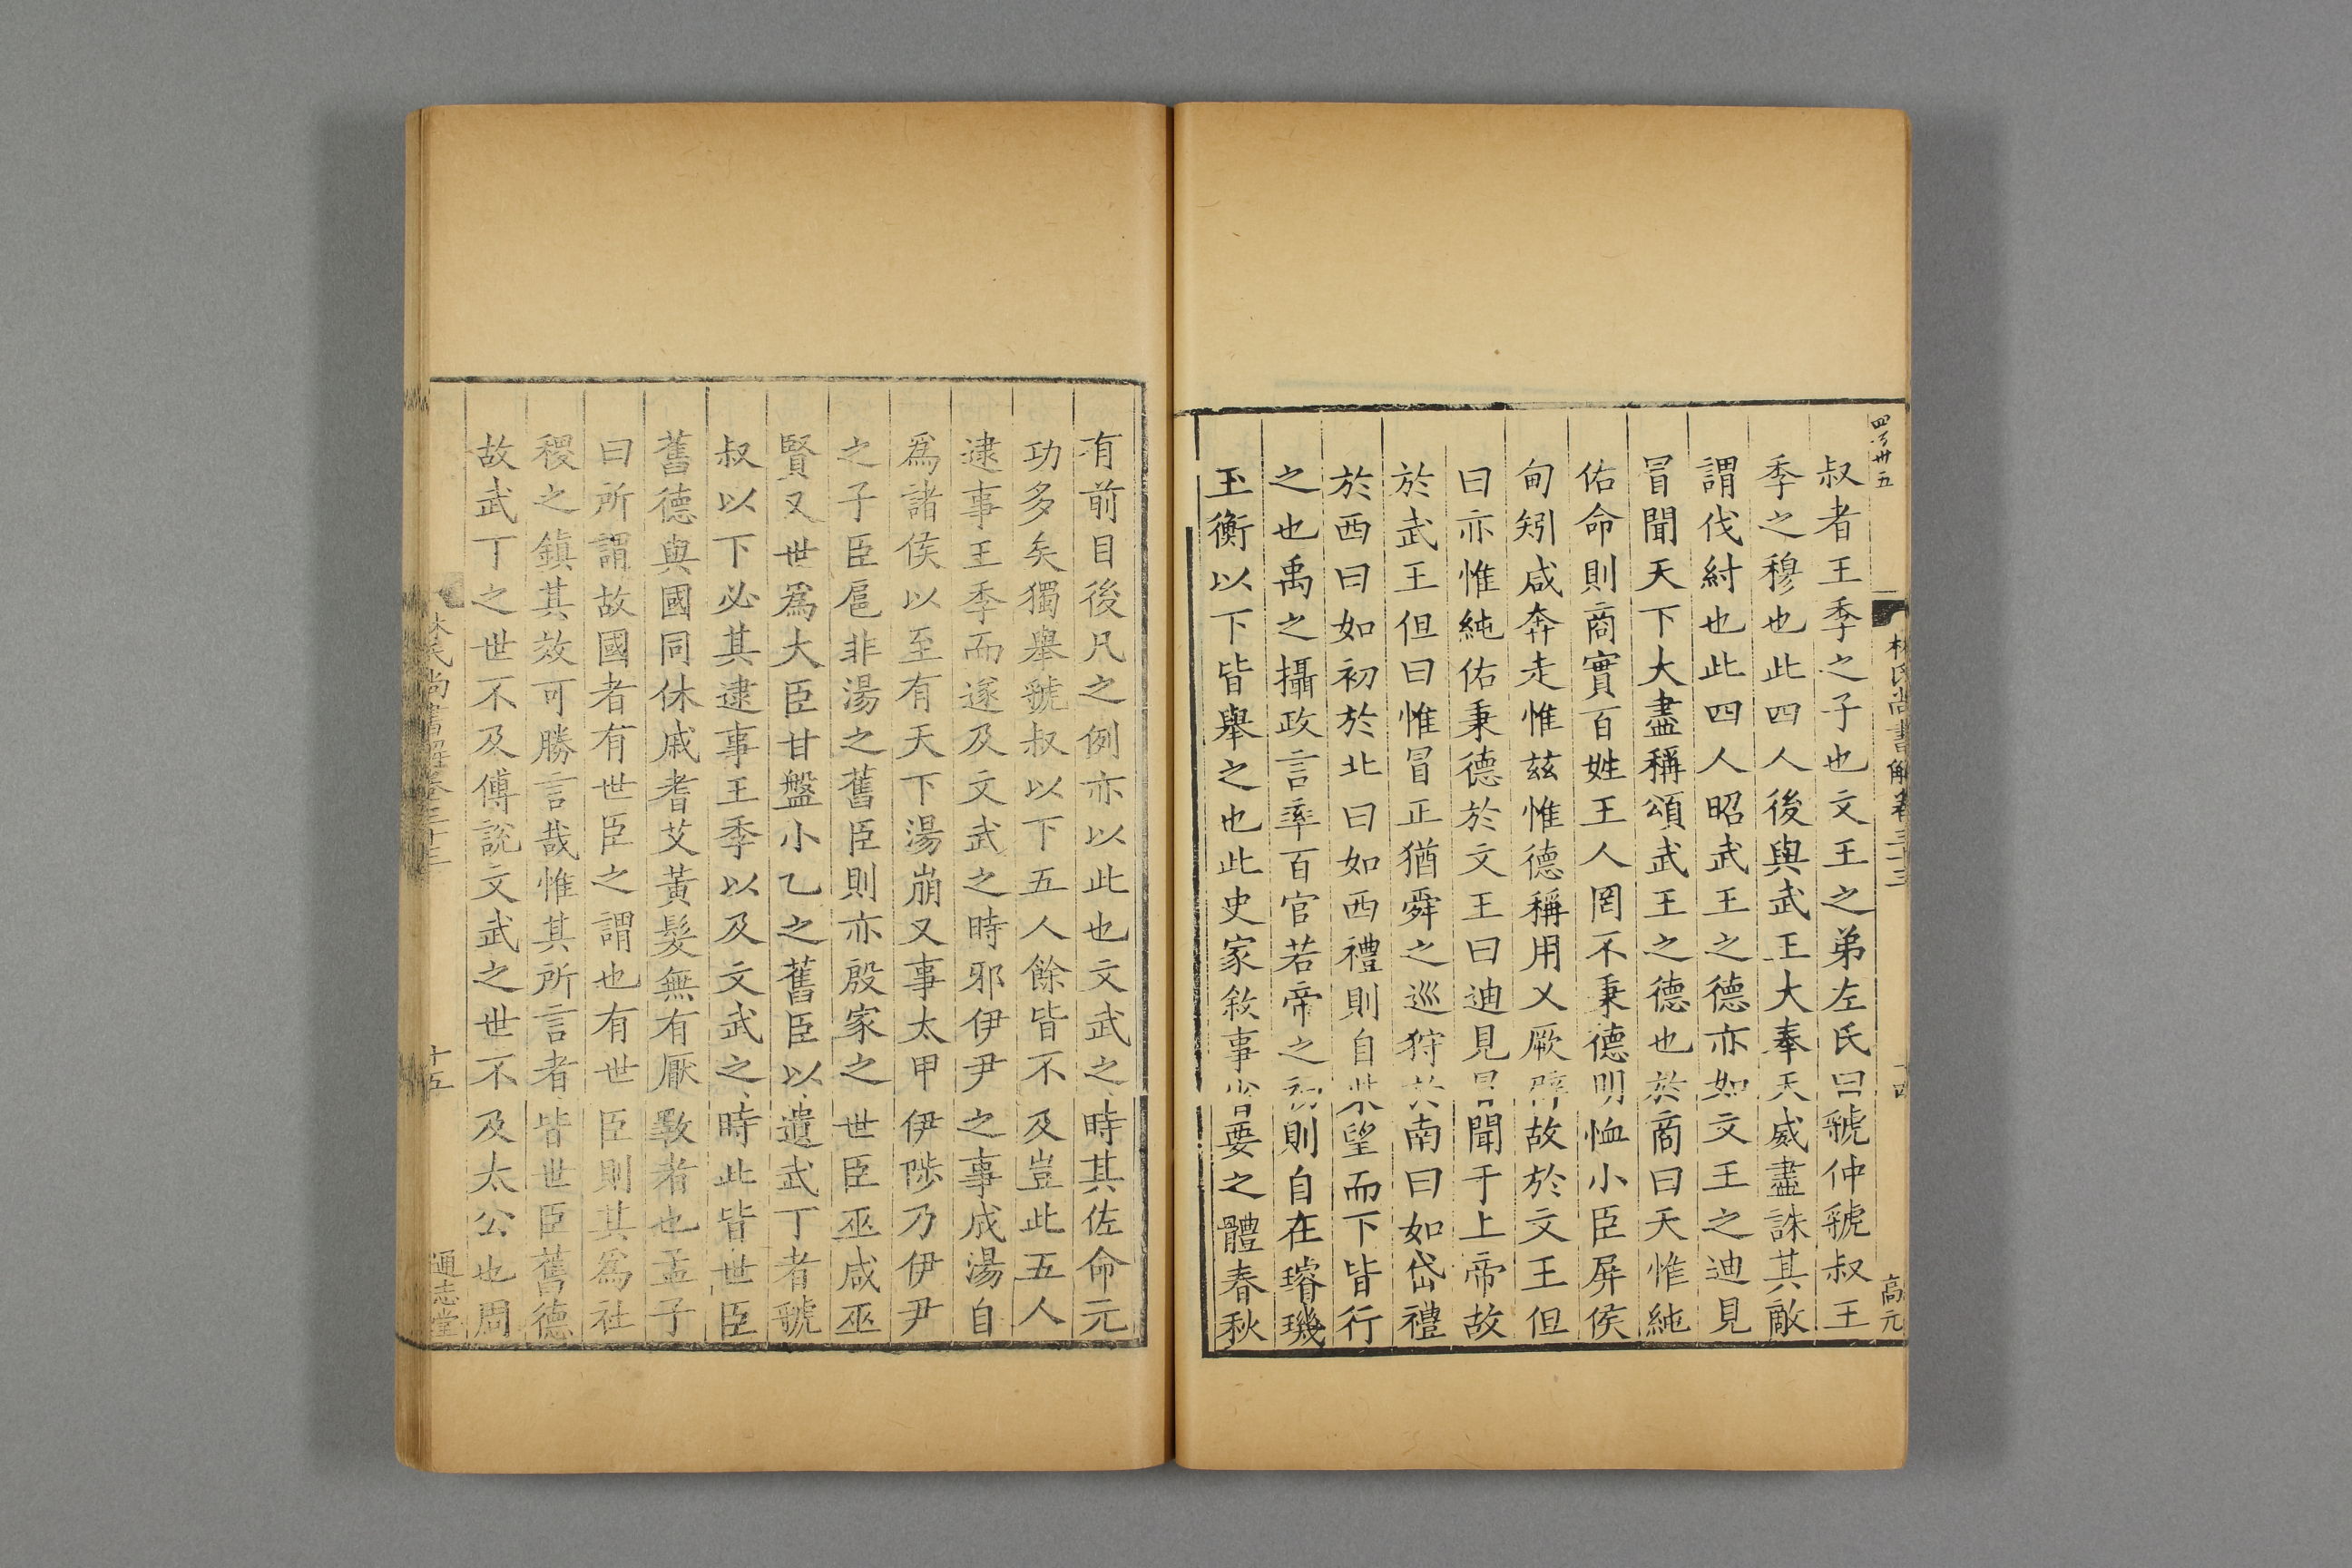 林氏尚書解卷三十三
高元
叔者王季之子也文王之弟左氏曰虢仲虢叔王
季之穆也此四人後與武王大奉天威盡誅其敵
謂伐紂也此四人昭武王之德亦如文王之迪見
冒聞天下大盡稱頌武王之德也於商曰天惟純
佑命則商實百姓王人罔不秉德明恤小臣屏侯
甸矧咸奔走惟兹惟德稱用乂厥辟故於文王但
曰亦惟純佑秉德於文王曰迪見冒聞于上帝故
於武王但曰惟冒正猶舜之巡狩於南曰如岱禮
於西曰如初於北曰如西禮則自柴望而下皆行
之也禹之攝政言率百官若帝之初則自在璿璣
玉衡以下皆舉之也此史家敘事省要之體春秋
有前目後凡之例亦以此也文武之時其佐命元
功多矣獨舉虢叔以下五人餘皆不及豈此五人
逮事王季而遂及文武之時邪伊尹之事成湯自
爲諸侯以至有天下湯崩又事太甲伊陟乃伊尹
之子臣扈非湯之舊臣則亦殷家之世臣巫咸巫
賢又世爲大臣甘盤小乙之舊臣以遺武丁者虢
叔以下必其逮事王季以及文武之時此皆世臣
舊德與國同休戚耆艾黃髮無有厭斁者也孟子
曰所謂故國者有世臣之謂也有世臣則其爲社
稷之鎮其效可勝言哉惟其所言者皆世臣舊德
故武丁之世不及傅說文武之世不及太公也周
林氏尚書解卷三十三
十五
通志堂